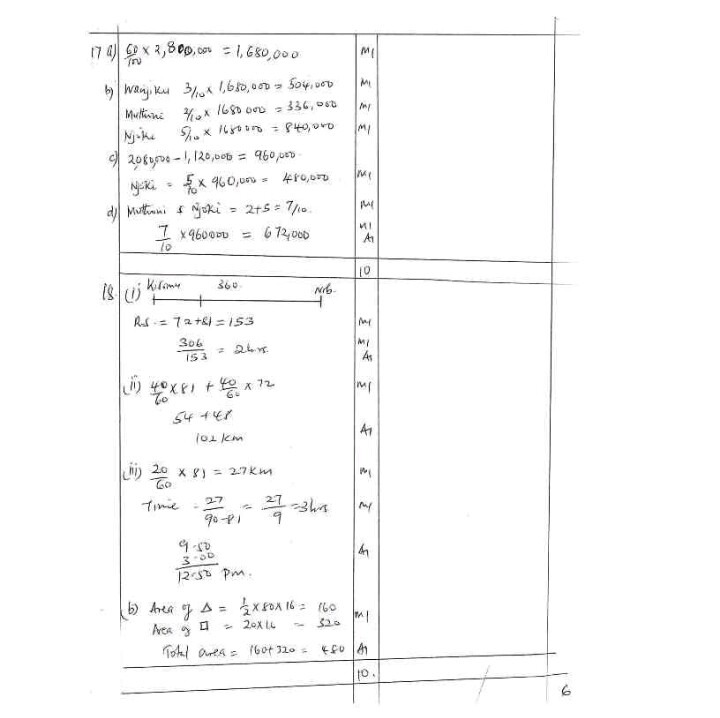 17 a) 60/100 x 2,800,000 = 1,680,000 M1
b) Wanjiku 3/10 x 1,680,000 = 504,000 M1
Muthoni 2/10 x 1680 000 = 336,000 M1
Njoki 5/10 x 1680 000 = 840,000 M1
c) 2080,000 - 1,120,000 = 960,000
Njoki = 5/10 x 960,000 = 480,000 M1
d) Muthoni & Njoki = 2+5 = 7/10 M1
7/10 x 960000 = 672,000 M1 A1
10
18 (i) Kisumu 360 Nrb.
R.S. = 72+81 = 153 M1
306/153 = 2hrs. M1 A1
(ii) 40/60 x 81 + 40/60 x 72 M1
54 + 48
102 km A1
(iii) 20/60 x 81 = 27km M1
Time = 27/90-81 = 27/9 = 3hrs M1
9.50
3.00
12.50 pm. A1
(b) Area of Δ = 1/2 x 80 x 16 = 160 M1
Area of □ = 20x16 = 320
Total area = 160+320 = 480 A1
10.
6